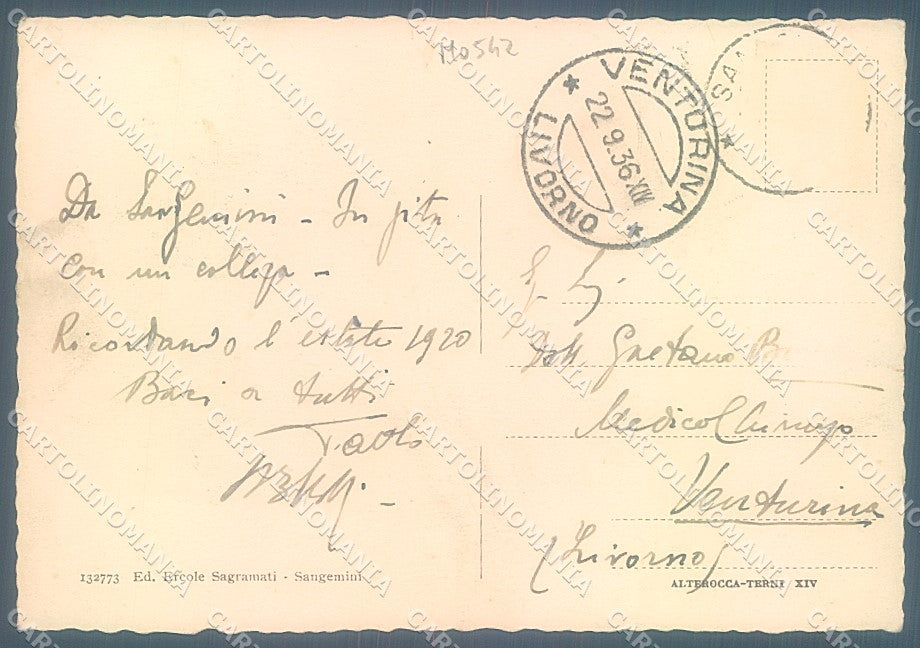 110542
VENTURINA
LIVORNO
22.9.36 XIV
SAN
Da Sangemini - In gita
con un collega -
Ricordando l'estate 1920
Baci a tutti
Paolo
Dott Gaetano
Medico Chirurgo
Venturina
(Livorno)
132773 Ed. Ercole Sagramati - Sangemini
ALTEROCCA-TERNI XIV
CARTOLINOMANIA